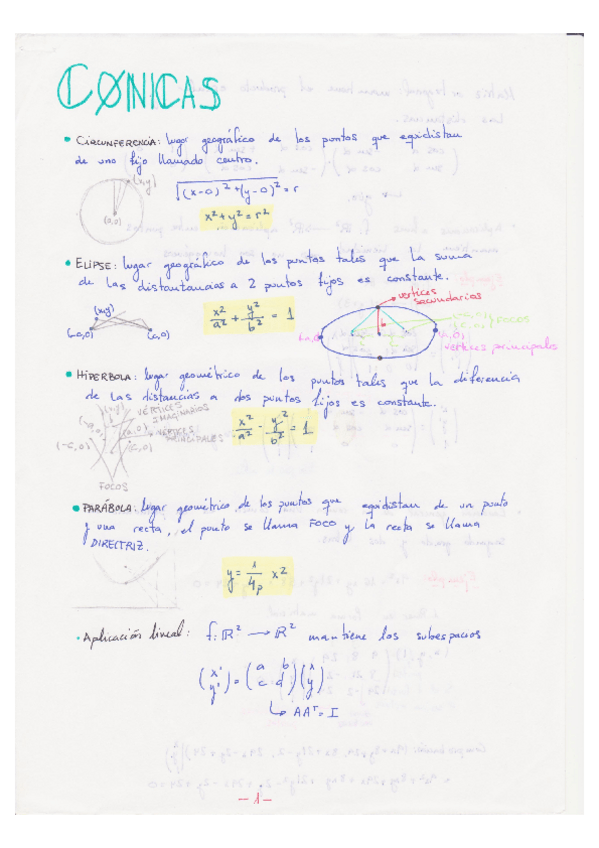 CÓNICAS
• CIRCUNFERENCIA: lugar geográfico de los puntos que equidistan
de uno fijo llamado centro.
(x,y)
(0,0)
√(x-0)²+(y-0)² = r
x²+y²=r²
• ELIPSE: lugar geográfico de los puntos tales que la suma
de las distantancias a 2 puntos fijos es constante.
(x,y)
(-c,0) (c,0)
x²/a² + y²/b² = 1
vértices
secundarios
b
FOCOS
(-a,0) (a,0)
vértices principales
• HIPÉRBOLA: lugar geométrico de los puntos tales que la diferencia
de las distancias a dos puntos fijos es constante.
(x,y) VÉRTICES
IMAGINARIOS
(-a,0) (a,0) VÉRTICES
PRINCIPALES
(-c,0) (c,0)
FOCOS
x²/a² - y²/b² = 1
• PARÁBOLA: lugar geométrico de los puntos que equidistan de un punto
y una recta, el punto se llama FOCO y la recta se llama
DIRECTRIZ.
y = 1/4p x2
• Aplicación lineal: f: ℝ² → ℝ² mantiene los subespacios
(x' y') = (a b c d)(x y)
↳ AAᵀ = I
- 1 -